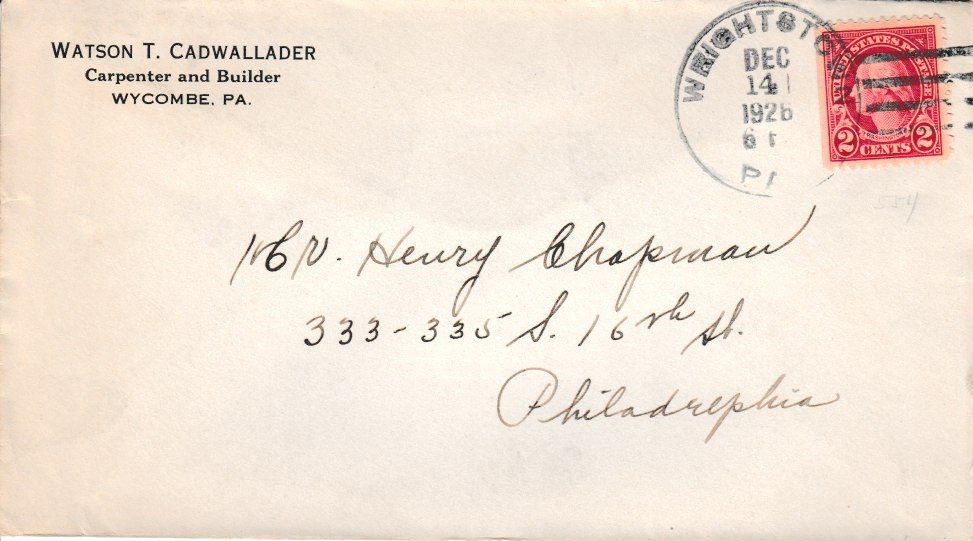 WATSON T. CADWALLADER
Carpenter and Builder
WYCOMBE, PA.
WRIGHTSTOWN
DEC
14
1926
6 P
PA
UNITED STATES POSTAGE
WASHINGTON
2 CENTS 2
Mr. Henry Chapman
333-335 S. 16th St.
Philadelphia